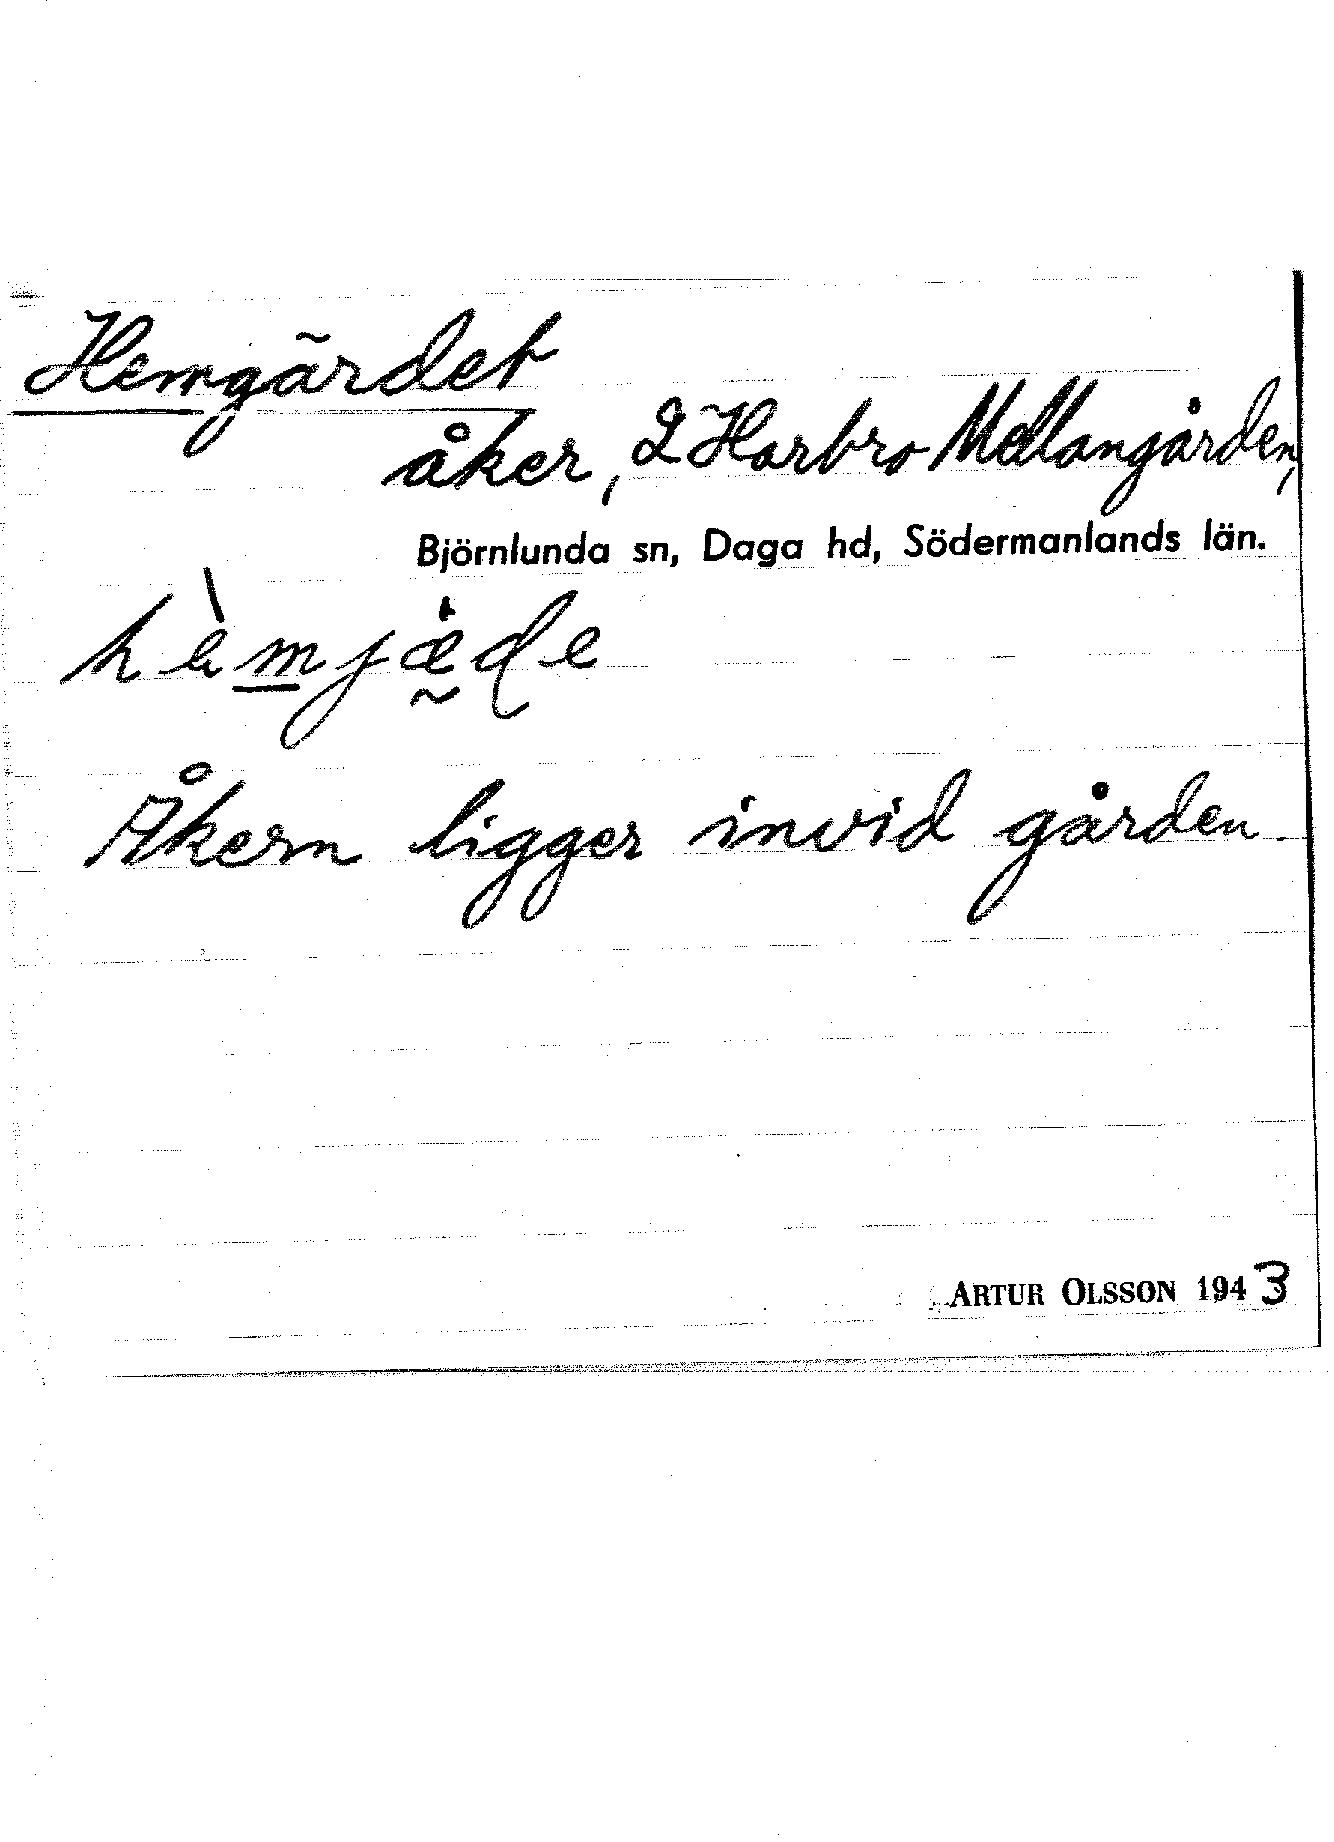 Hemgärdet
åker, 2 Harbro Mellangården,
Björnlunda sn, Daga hd, Södermanlands län.
hèmjæde
Åkern ligger invid gården
ARTUR OLSSON 1943